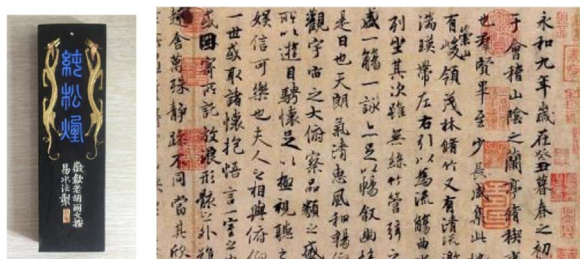 純松煙
徽歙老胡開文按
易水法製
永和九年歲在癸丑暮春之初
于會稽山陰之蘭亭脩稧
也羣賢畢至少長咸集此
崇山
有峻領茂林脩竹又有清流激
湍暎帶左右引以為流觴曲
列坐其次雖無絲竹管弦之
盛一觴一詠亦足以暢敘幽
是日也天朗氣清惠風和暢仰
觀宇宙之大俯察品類之盛
所以遊目騁懷足以極視聽之
娛信可樂也夫人之相與俯仰
一世或取諸懷抱悟言一室之
或因寄所託放浪形骸之外雖
趣舍萬殊靜躁不同當其欣